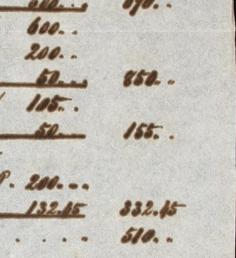 600..
200..
50... 850..
105..
50.. 155..
P. 200...
132.45 332.45
. . . . 510..